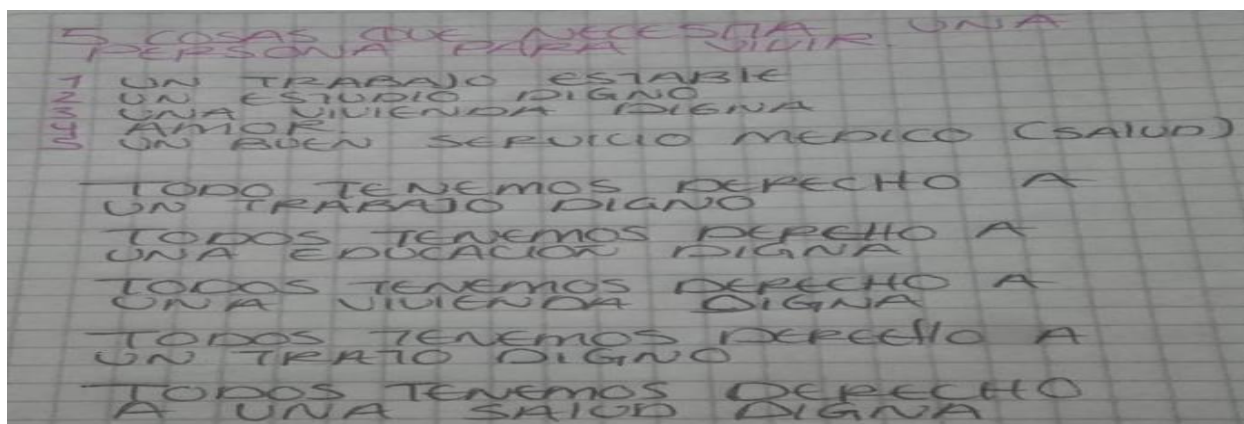 5 COSAS QUE NECESITA UNA
PERSONA PARA VIVIR
1 UN TRABAJO ESTABLE
2 UN ESTUDIO DIGNO
3 UNA VIVIENDA DIGNA
4 AMOR
5 UN BUEN SERVICIO MEDICO (SALUD)
TODO TENEMOS DERECHO A
UN TRABAJO DIGNO
TODOS TENEMOS DERECHO A
UNA EDUCACION DIGNA
TODOS TENEMOS DERECHO A
UNA VIVIENDA DIGNA
TODOS TENEMOS DERECHO A
UN TRATO DIGNO
TODOS TENEMOS DERECHO
A UNA SALUD DIGNA